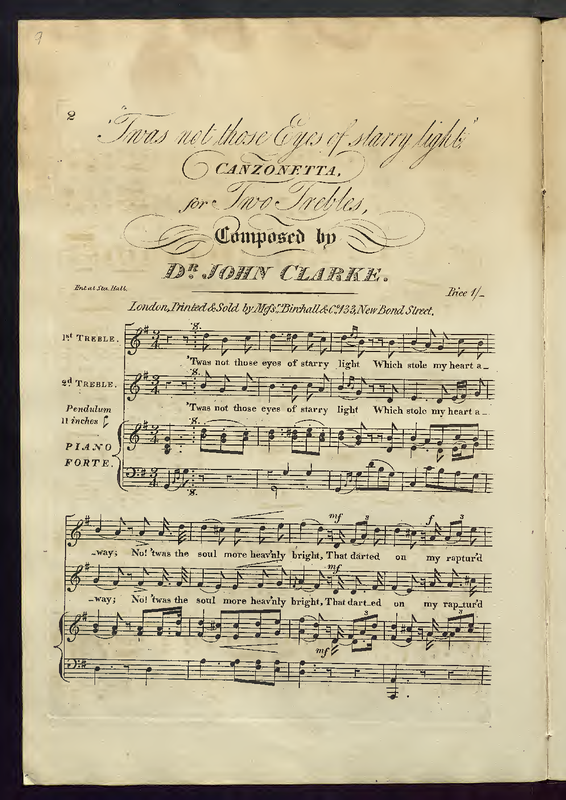 9
2
"'Twas not those Eyes of starry light,"
CANZONETTA,
for Two Trebles,
Composed by
Dr. JOHN CLARKE.
Ent. at Sta. Hall.
Price 1/-
London, Printed & Sold by Mefsrs. Birchall & Co. 133, New Bond Street.
1st TREBLE.
'Twas not those eyes of starry light Which stole my heart a_
2d TREBLE.
'Twas not those eyes of starry light Which stole my heart a_
Pendulum
11 inches
PIANO
FORTE.
mf f
_way; No! 'twas the soul more heav'nly bright, That darted on my raptur'd
mf
_way; No! 'twas the soul more heav'nly bright, That dart_ed on my rap_tur'd
mf